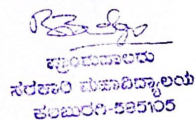 ಪ್ರಾಂಶುಪಾಲರು
ಸರಕಾರಿ ಮಹಾವಿದ್ಯಾಲಯ
ಕಲಬುರಗಿ-585105